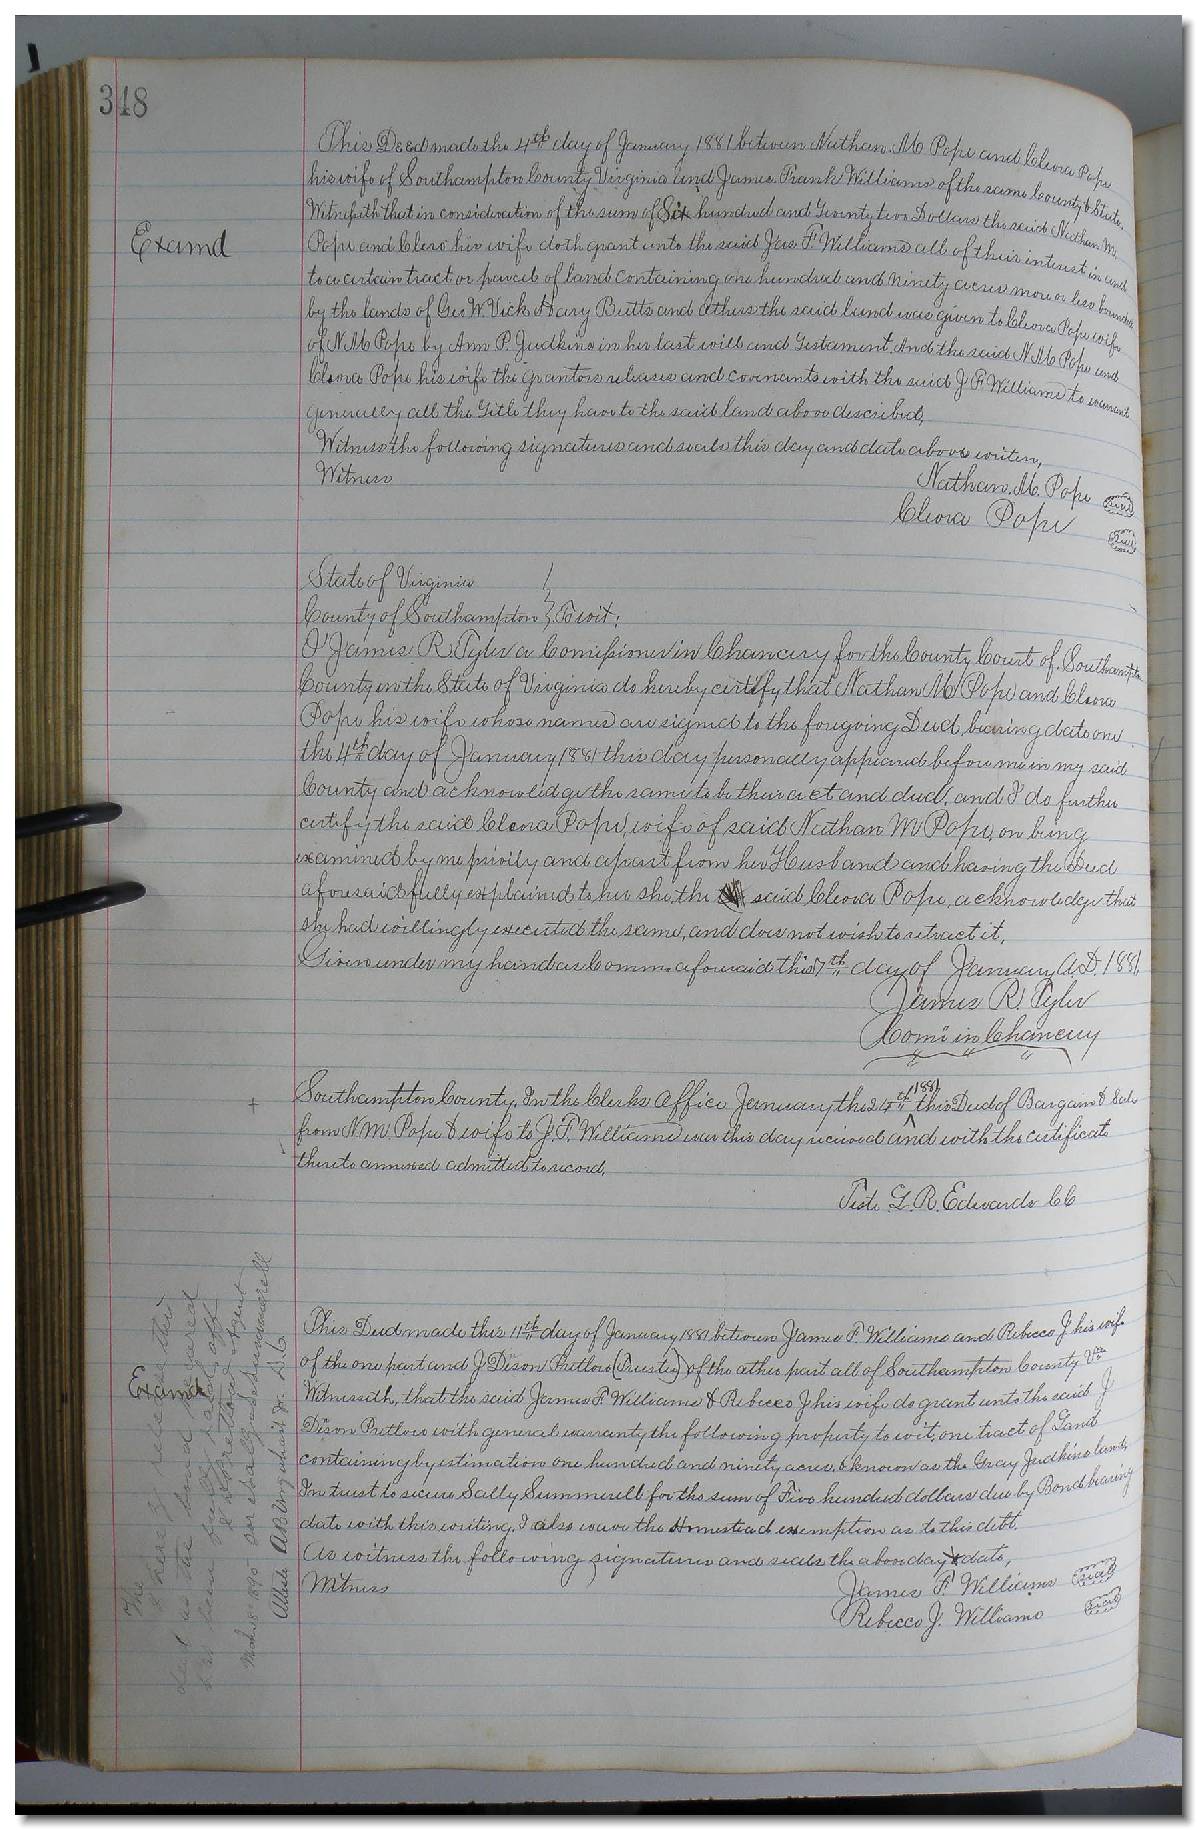 348
This Deed made the 4th day of January 1881 between Nathan. M. Pope and Cleora Pope
his wife of Southampton County Virginia and James. Frank Williams of the same County & State.
Witnesseth that in consideration of the sum of Six hundred and Twenty two Dollars the said Nathan M.
Examd
Pope and Cleora his wife doth grant unto the said Jas F. Williams all of their interest in and
to a certain tract or parcel of land containing one hundred and ninety acres more or less bounded
by the lands of Geo W. Vick, Mary Butts and others the said land was given to Cleora Pope wife
of N. M. Pope by Ann P. Judkins in her last will and Testament. And the said N. M. Pope and
Cleora Pope his wife the grantors releases and covenants with the said J. F. Williams to warrant
generally all the Title they have to the said land above described,
Witness the following signatures and seals this day and date above writen,
Witness
Nathan. M. Pope seal
Cleora Pope seal
State of Virginia
County of Southampton } To wit:
I James R. Tyler a Comissioner in Chancery for the County Court of Southampton
County in the State of Virginia do hereby certify that Nathan M Pope and Cleora
Pope his wife whose names are signed to the foregoing Deed, bearing date one
the 4th day of January 1881 this day personally appeared before me in my said
County and acknowledge the same to be their act and deed, and I do further
certify the said Cleora Pope, wife of said Nathan M Pope, on being
examined by me privily and apart from her Husband and having the Deed
aforesaid fully explained to her she the said Cleora Pope, acknowledge that
she had willingly executed the same, and does not wish to retract it.
Given under my hand as Comm. aforesaid this 7th day of January A.D. 1881
James R. Tyler
Comr in Chancery
Southampton County. In the Clerks Office January the 24th 1881 this Deed of Bargain & Sale
from N M Pope & wife to J. F. Williams was this day received and with the certificate
thereto annexed admitted to record.
Teste L. R. Edwards CC
This Deed made this 11th day of January 1881 between James F. Williams and Rebecca J his wife
of the one part and J. Dison Pretlow (Trustee) of the other part all of Southampton County Va
Examd
Witnesseth, that the said James F. Williams & Rebecca J his wife do grant unto the said J
Dison Pretlow with general warranty the following property to wit, one tract of Land
containing by estimation one hundred and ninety acres, & known as the Gray Judkins land,
In trust to secure Sally Summerell for the sum of Five hundred dollars due by Bond bearing
date with this writing. I also wave the Homestead exemption as to this debt.
As witness the following signatures and seals the above day & date,
Witness
James F. Williams seal
Rebecca J. Williams seal